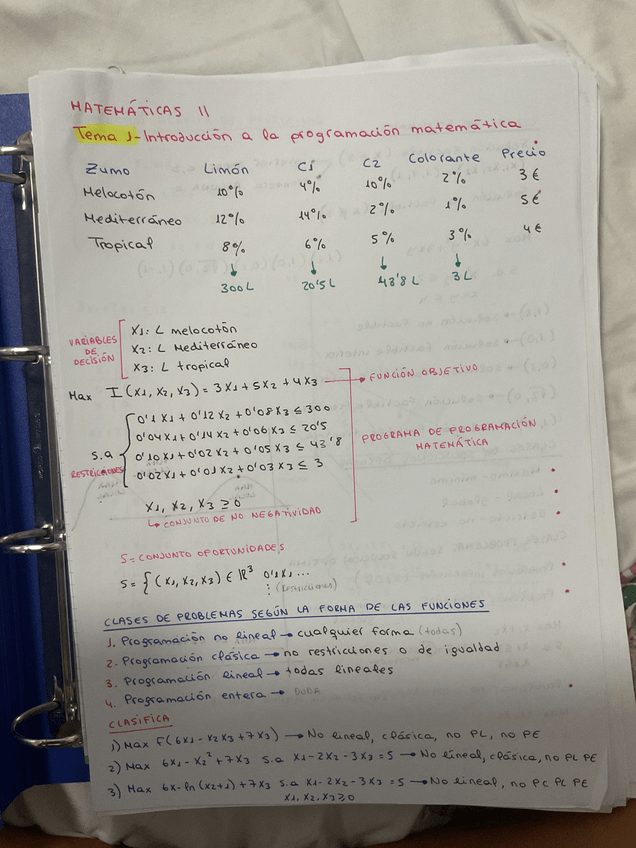 MATEMÁTICAS II
Tema 1- Introducción a la programación matemática
Zumo Limón C1 C2 Colorante Precio
Melocotón 10% 4% 10% 2% 3€
Mediterráneo 12% 14% 2% 1% 5€
Tropical 8% 6% 5% 3% 4€
300L 20'5L 43'8L 3L
VARIABLES DE DECISIÓN
X1: L melocotón
X2: L Mediterráneo
X3: L tropical
Max I(X1, X2, X3) = 3X1 + 5X2 + 4X3 → FUNCIÓN OBJETIVO
s.a
RESTRICCIONES
0'1 X1 + 0'12 X2 + 0'08 X3 ≤ 300
0'04 X1 + 0'14 X2 + 0'06 X3 ≤ 20'5
0'10 X1 + 0'02 X2 + 0'05 X3 ≤ 43'8
0'02 X1 + 0'01 X2 + 0'03 X3 ≤ 3
PROGRAMA DE PROGRAMACIÓN MATEMÁTICA
X1, X2, X3 ≥ 0
↳ CONJUNTO DE NO NEGATIVIDAD
S = CONJUNTO OPORTUNIDADES
S = { (X1, X2, X3) ∈ IR³ 0'1X1 ...
⋮ (RESTRICCIONES)
CLASES DE PROBLEMAS SEGÚN LA FORMA DE LAS FUNCIONES
1. Programación no lineal → cualquier forma (todas)
2. Programación clásica → no restricciones o de igualdad
3. Programación lineal → todas lineales
4. Programación entera → DUDA
CLASIFICA
1) Max F(6X1 - X2X3 + 7X3) → No lineal, clásica, no PL, no PE
2) Max 6X1 - X2² + 7X3 s.a X1 - 2X2 - 3X3 = 5 → No lineal, clásica, no PL PE
3) Max 6X - ln (X2+1) + 7X3 s.a X1 - 2X2 - 3X3 = 5 → No lineal, no PC PL PE
X1, X2, X3 ≥ 0